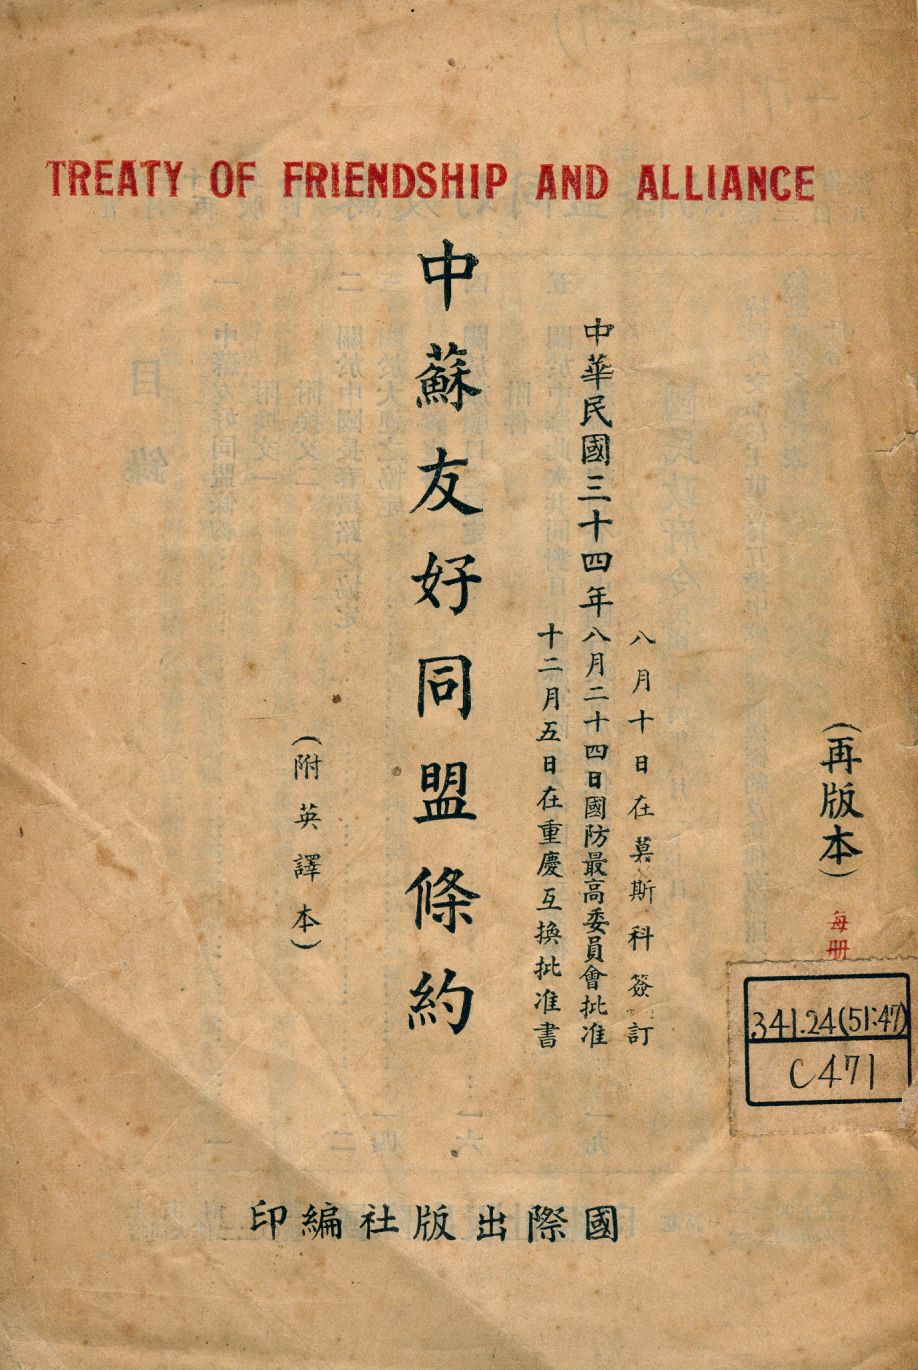 TREATY OF FRIENDSHIP AND ALLIANCE
(再版本)
每册
八月十日在莫斯科簽訂
中華民國三十四年八月二十四日國防最高委員會批准
十二月五日在重慶互換批准書
中蘇友好同盟條約
(附英譯本)
國際出版社編印
341.24(51:47)
C471